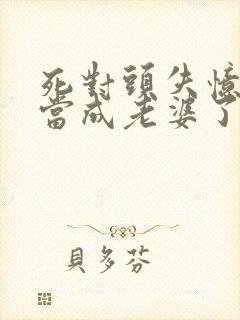 死對頭失憶
當成老婆了
貝多芬